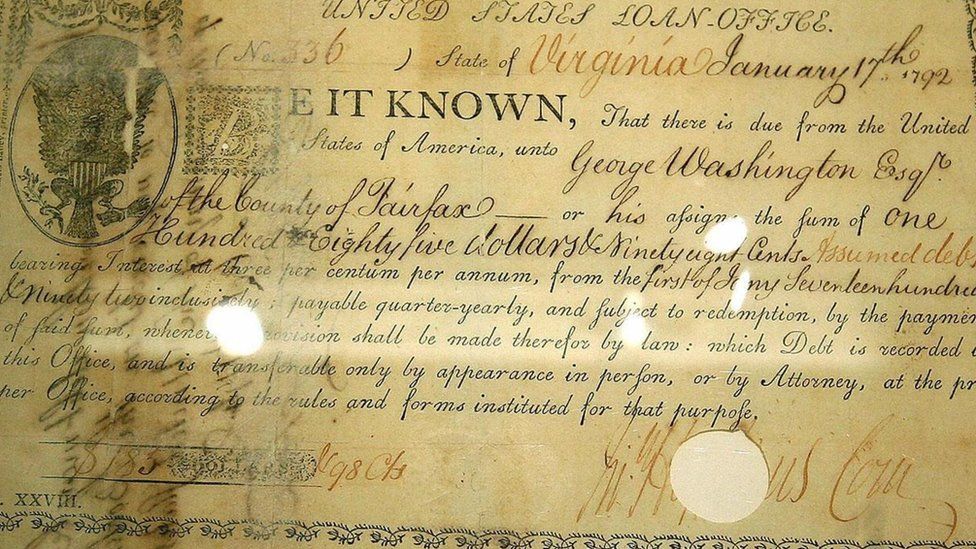 UNITED STATES LOAN-OFFICE.
(No. 336 ) State of Virginia January 17th 1792
BE IT KNOWN, That there is due from the United
States of America, unto George Washington Esqr.
of the County of Fairfax — or his assigns the sum of one
Hundred & Eighty five dollars & Ninety eight Cents Assumed debt
bearing Interest at three per centum per annum, from the first of Jany Seventeen hundred
& Ninety two inclusively: payable quarter-yearly, and subject to redemption, by the paymen
of said sum, whenever provision shall be made therefor by law: which Debt is recorded i
this Office, and is transferable only by appearance in person, or by Attorney, at the pr
per Office, according to the rules and forms instituted for that purpose.
$ 185 DOLLARS 98 Cts
XXVIII.